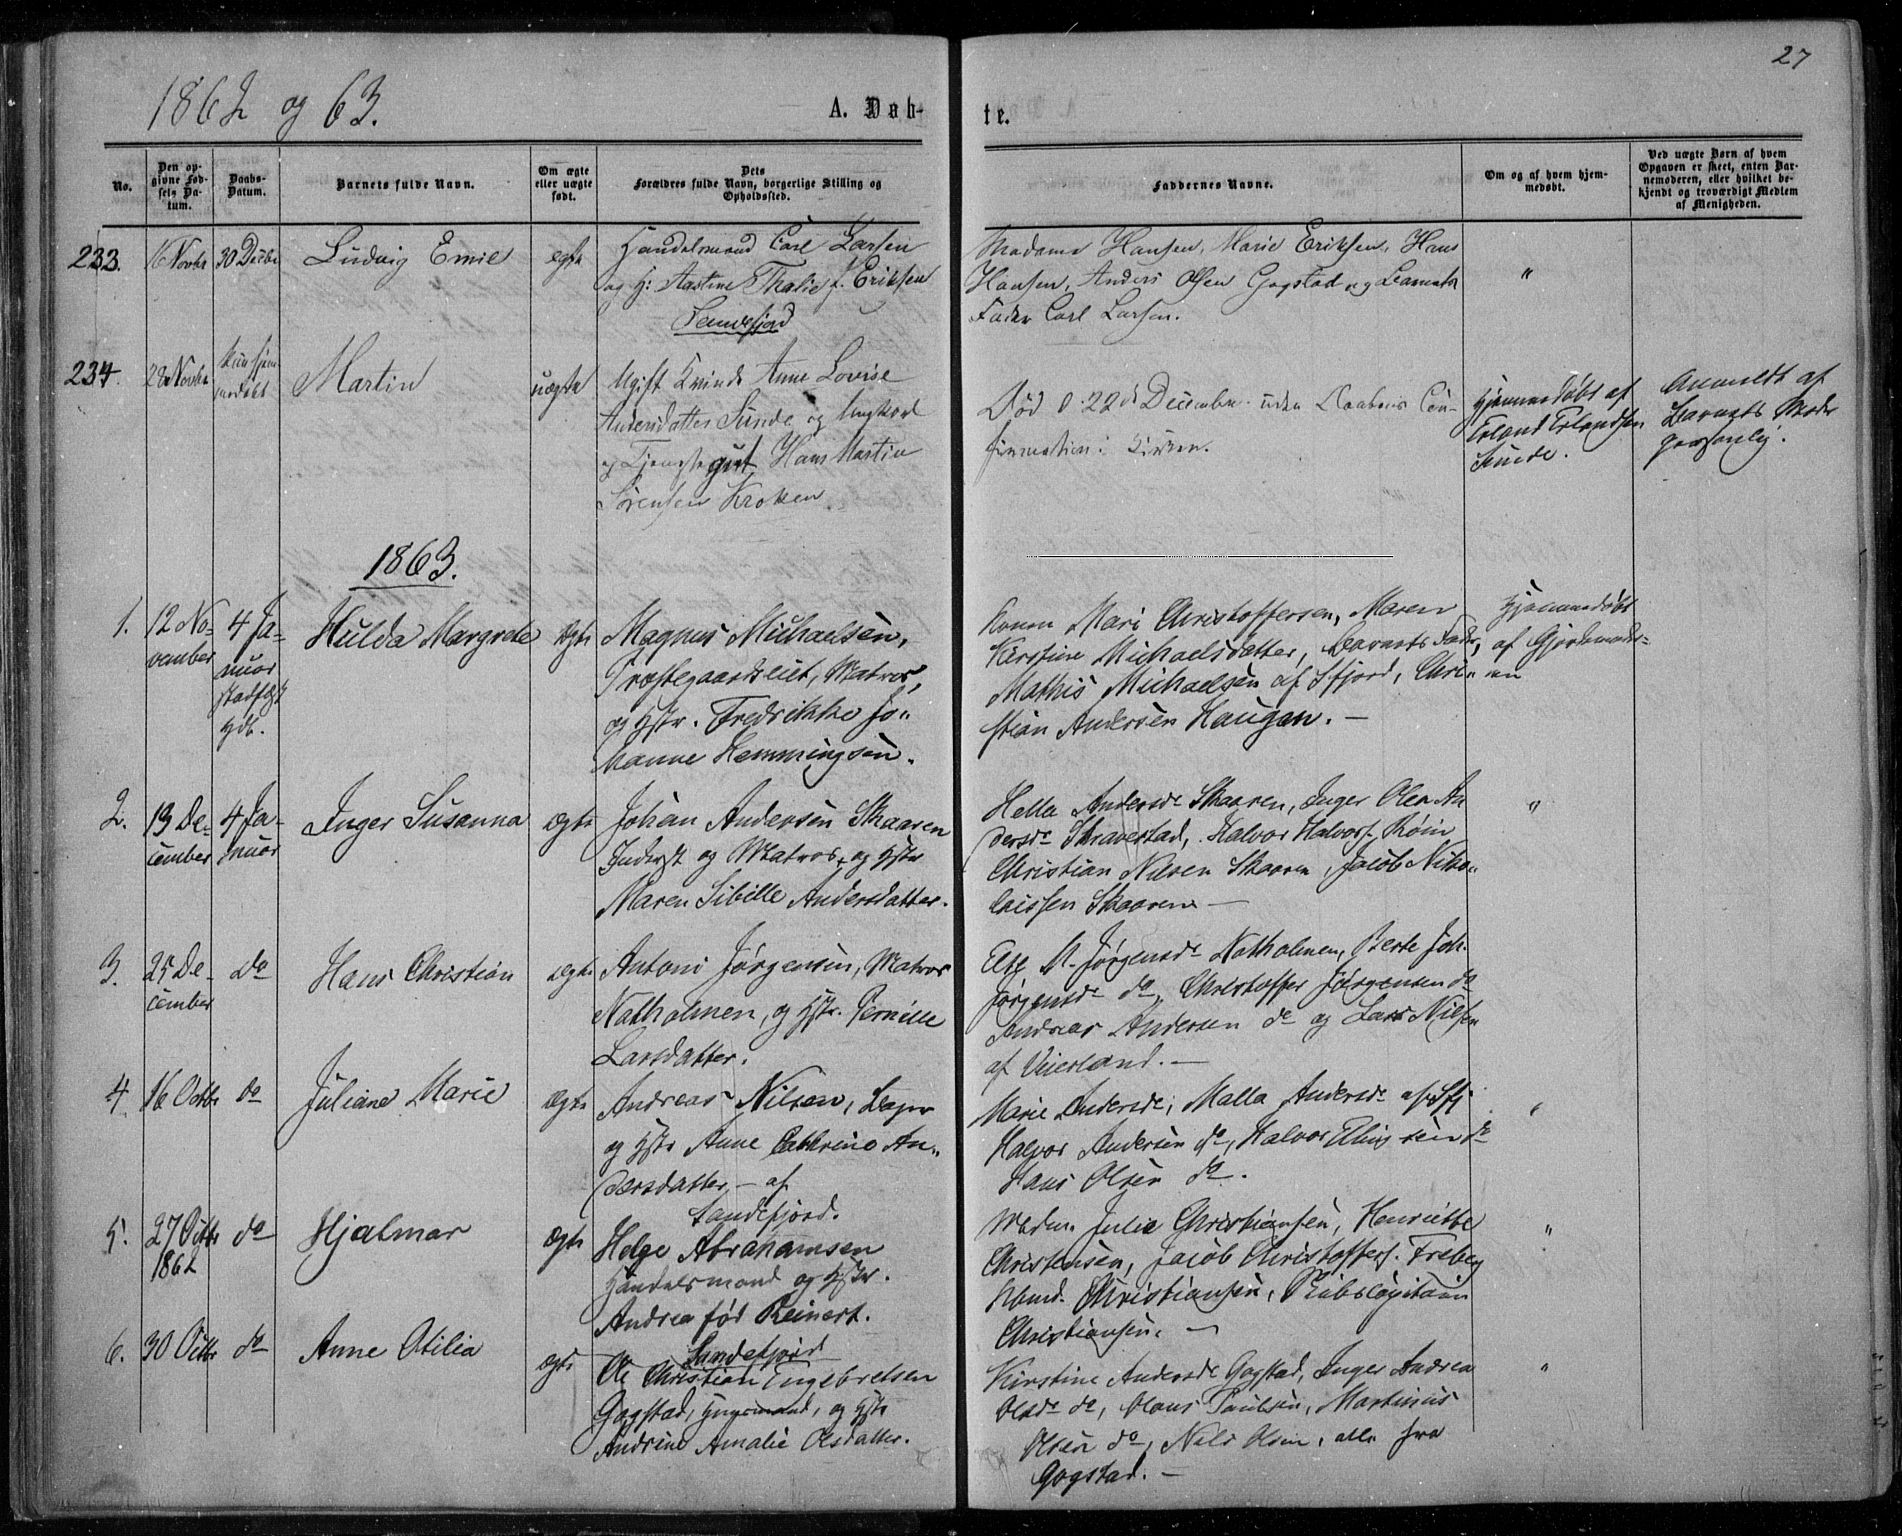 27
1862 og 63.
A. Døb-
te.
No.
Den op-
givne Fød-
sels Da-
tum.
Daabs-
Datum.
Barnets fulde Navn.
Om ægte
eller uægte
født.
Dets
Forældres fulde Navn, borgerlige Stilling og
Opholdssted.
Faddernes Navne.
Om og af hvem hjem-
medøbt.
Ved uægte Børn af hvem
Opgaven er skeet, enten Bar-
nemoderen, eller hvilket be-
kjendt og troværdigt Medlem
af Menigheden.
233.
16 Novbr
30 Decbr
Ludvig Emil
ægte
Handelsmand Carl Larsen
og H: Thalie f. Eriksen
Sandefjord
Madame Hansen, Marie Eriksen, Hans
Hansen, Anders Olsen Gogstad og Barnets
Fader Carl Larsen.
"
234.
28 Novbr
kun hjem
medøbt
Martin
uægte
Ugift Kvinde Anne Lovise
Andersdatter Sunde og Ungkarl
og Tjenestegut Hans Martin
Sørensen Kroken
Død d. 22de December uden Daabens Con-
firmation i Kirken.
Hjemmedøbt af
Erland Erlandsen
Sunde.
Anmeldt af
Barnets Moder
personlig.
1863.
1.
12 No-
vember
4 Ja-
nuar
stadfæst
Hulda Margrete
ægte
Magnus Michaelsen,
Præstegaardseiet, Matros,
og Hstr. Fredrikke Jo-
hanne Hemmingsen.
Konen Mari Christoffersen, Maren
Kirstine Michaelsdatter, Barnets Fader,
Mathis Michaelsen af Sfjord, Chri-
stian Andersen Haugen. —
Hjemmedøbt
af Gjordemoder-
en
2.
13 De-
cember
4 Ja-
nuar
Inger Susanna
ægte
Johan Andersen Skaaren
Inderst og Matros, og Hstr
Maren Sibille Andersdatter.
Helle Andersdr Skaaren, Inger Olea An
dersdr Skravestad, Halvor Halvors. Røin
Christian Nilsen Skaaren, Jacob Niko-
laissen Skaaren —
"
3.
25 De-
cember
do
Hans Christian
ægte
Antoni Jørgensen, Matros
Natholmen, og Hstr. Pernille
Larsdatter.
Else M. Jørgensdr Natholmen, Berte Joh.
Jørgensdr do, Christoffer Jørgensen do
Andreas Andersen do og Lars Nilsen
af Veierland. —
4.
16 Octbr
do
Juliane Marie
ægte
Andreas Nilsen, Bager
og Hstr Anne Cathrine An-
dersdatter — af
Sandefjord.
Marie Andersdr, Malla Andersdr af Sfj
Halvor Andersen do, Halvor Ellingsen do
Hans Olsen do.
"
5.
27 Octbr
1862
do
Hjalmar
ægte
Helge Abrahamsen
Handelsmand og Hstr.
Andrea født Reinert.
Sandefjord
Madm. Julie Christiansen, Henriette
Christensen, Jacob Christoffers. Freberg
Christiansen, Skibscapitain
Christiansen. —
"
6.
30 Octbr
do
Anne Otilia
ægte
Ole Christian Engebretsen
Gogstad, Huusmand, og Hstr
Andrine Amalie Olsdatter.
Kirstine Andersdr Gogstad, Inger Andrea
Olsdr do, Olaus Paulsen, Martinius
Olsen do, Nils Olsen, alle fra
Gogstad. —
"